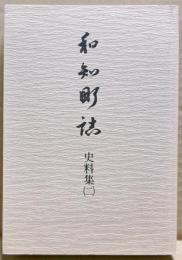 和知町誌
史料集(二)